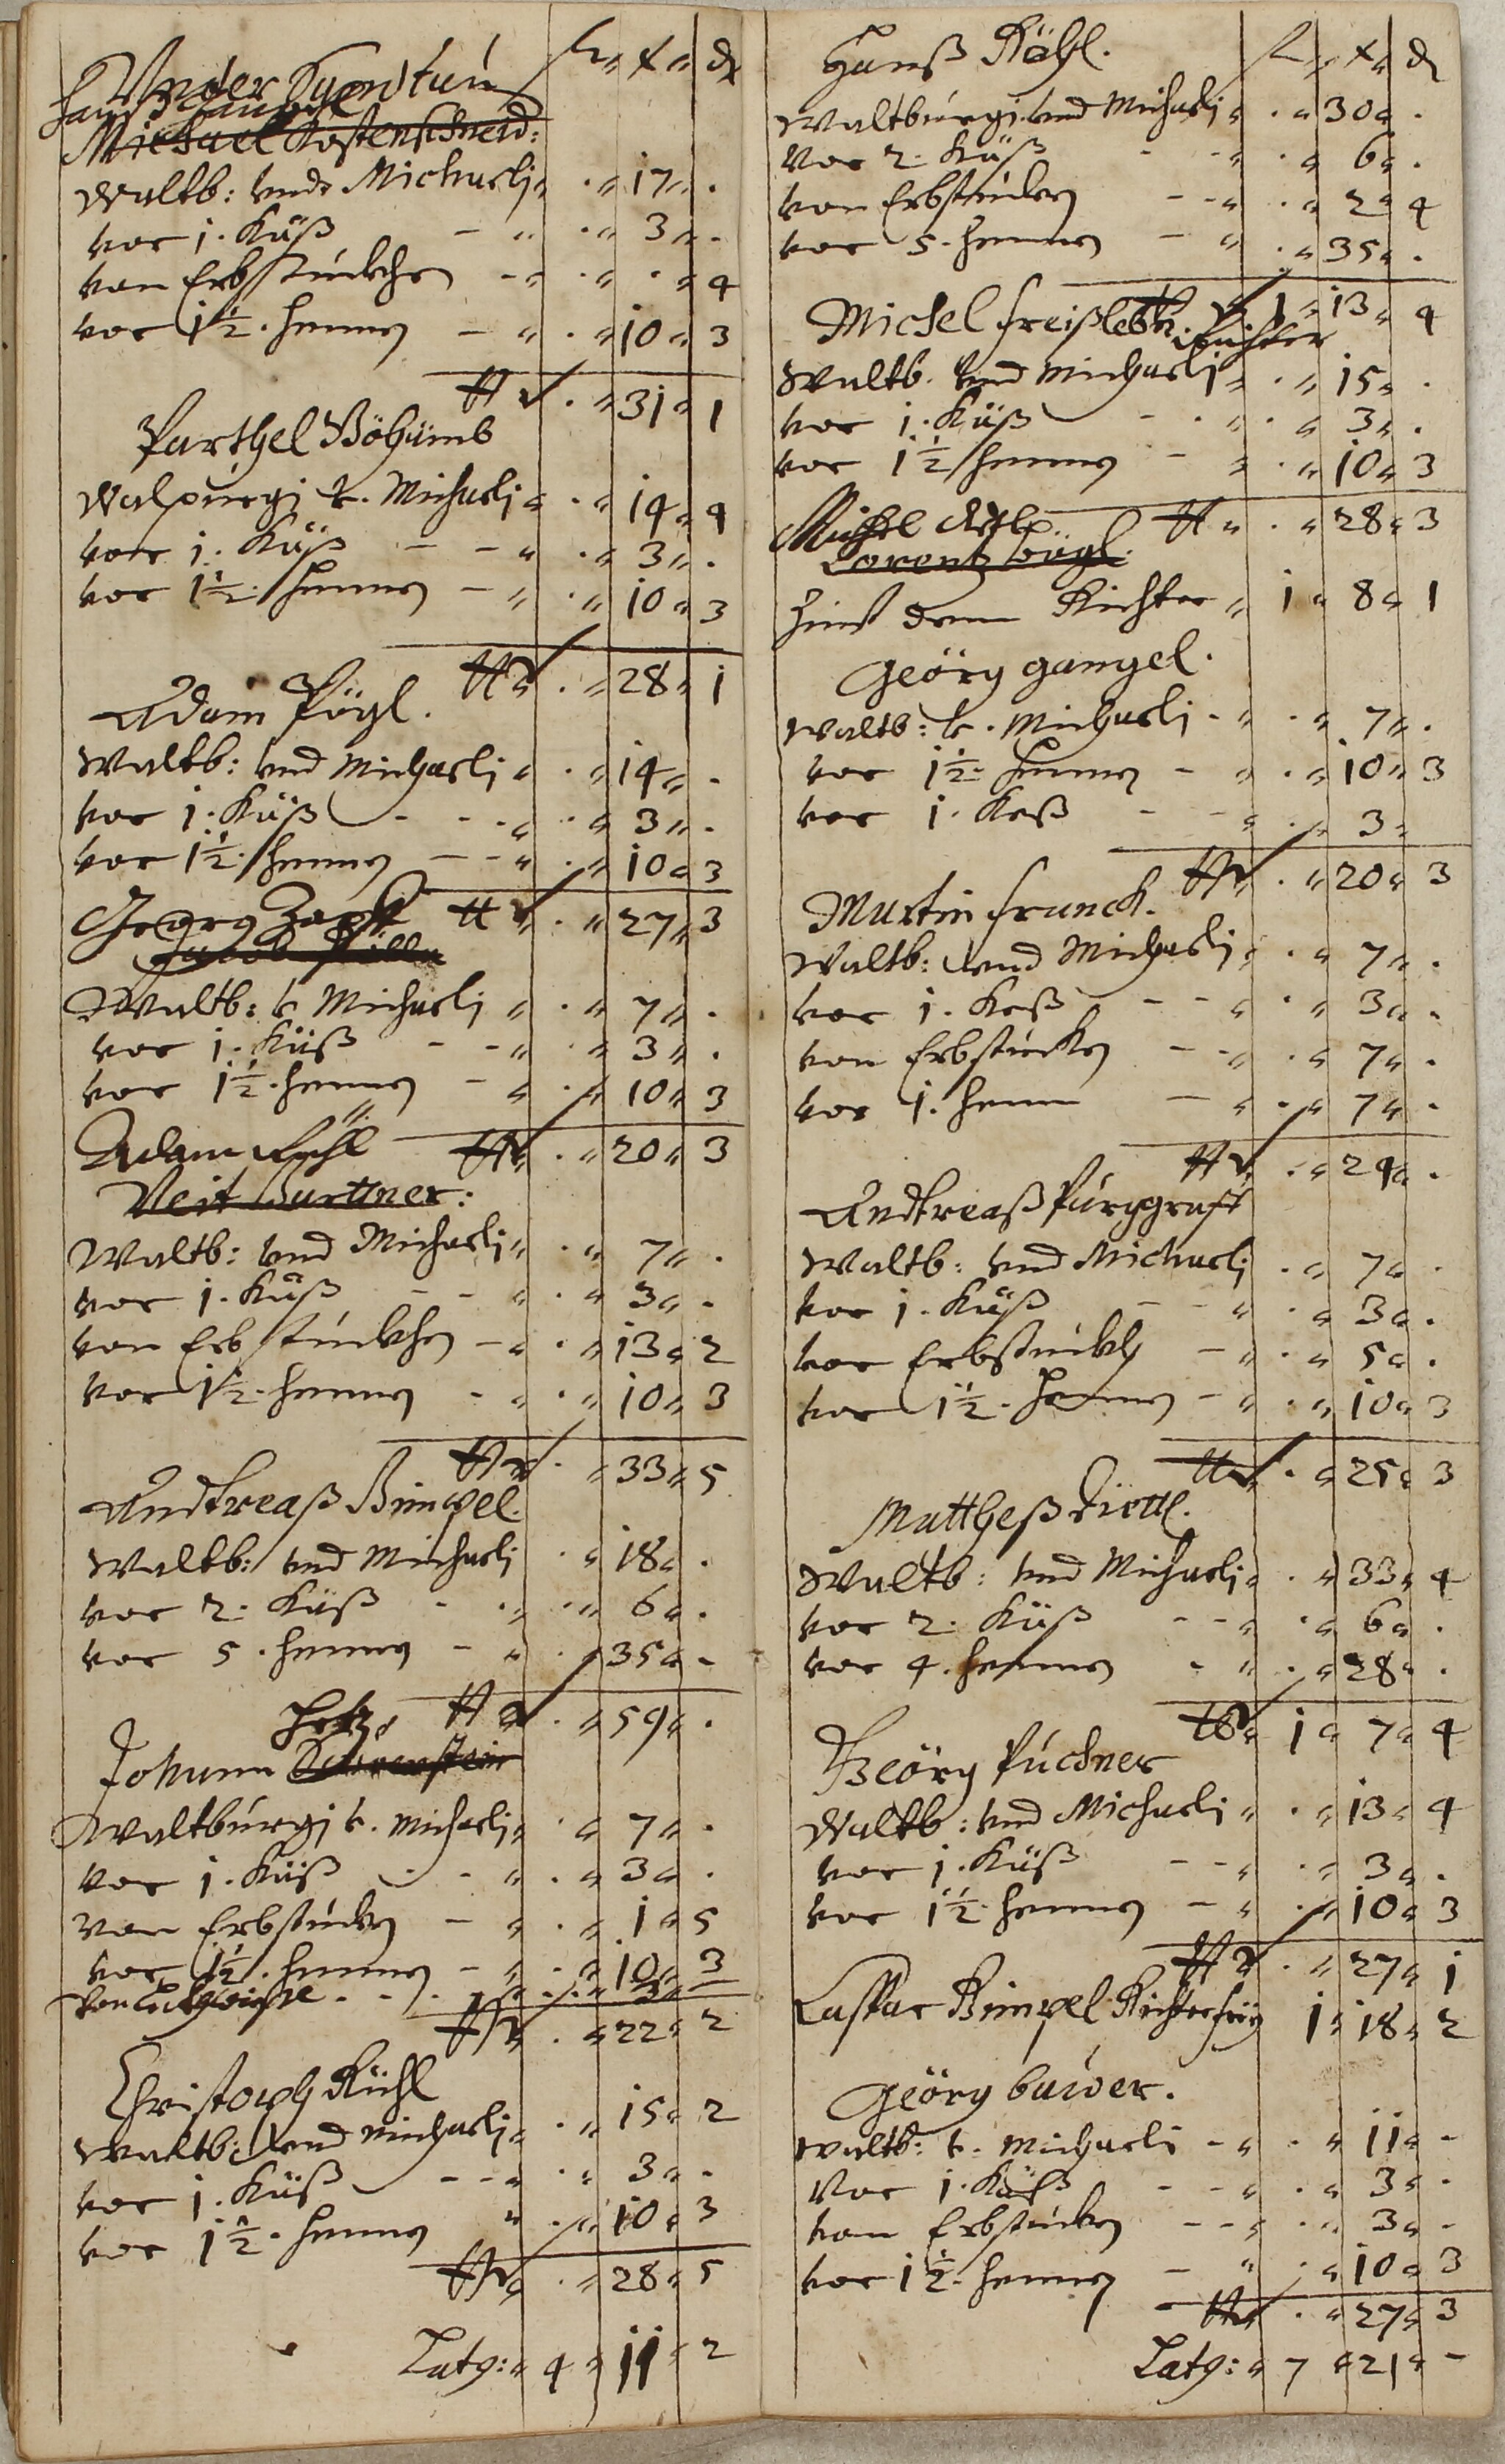 Under Ggmdtuin fl. x. d.
Hanß Gangel
Michael Kostenschneid:
Waltb: undt Michaelj . 17 .
vor 1. Käß . 3 .
von Erbstückhen . . 4
vor 1½. hennen . 10 3
. 31 1
Parthel Böhümb
Walpurgj v. Michaelj . 14 4
vor 1. Käß . 3 .
vor 1½. hennen . 10 3
. 28 1
Adam Pögl.
Waltb: vnd Michaelj . 14 .
vor 1. Käß . 3 .
vor 1½. hennen . 10 3
. 27 3
Georg Zapf
Jacob
Waltb: v Michaelj . 7 .
vor 1. Käß . 3 .
vor 1½. hennen . 10 3
. 20 3
Adam
Veit Gurttner:
Waltb: vnd Michaelj . 7 .
vor 1. Käß . 3 .
von Erbstückhen . 13 2
vor 1½. hennen . 10 3
. 33 5
Andtreaß Bimpel.
Waltb: vnd Michaelj . 18 .
vor 2. Käß . 6 .
vor 5. hennen . 35 .
. 59 .
Johann
Waltburgj v. Michaelj . 7 .
vor 1. Käß . 3 .
von Erbstückhen . 1 5
vor 1½. hennen . 10 3
von . 3 –
. 22 2
Christoph Kühl
Waltb: vnd Michaelj . 15 2
vor 1. Käß . 3 .
vor 1½. hennen . 10 3
. 28 5
Latg: 4 11 2
Hanß Kögl. fl. x. d.
Waltburgj vnd Michaelj . 30 .
vor 2. Käß . 6 .
von Erbstückhen . 2 4
vor 5. hennen . 35 .
1 13 4
Michel freißleb. Richter
Waltb. vnd Michaelj . 15 .
vor 1. Käß . 3 .
vor 1½ hennen . 10 3
. 28 3
Michel
Lorentz Vögl.
Zinst dem Richter 1 8 1
Geörg gangel.
Waltb: v. Michaelj . 7 .
vor 1½. hennen . 10 3
vor 1. Keß . 3
. 20 3
Martin franch.
Waltb: vnd Michaelj . 7 .
vor 1. Keß . 3 .
von Erbstückhen . 7 .
vor 1. henn . 7 .
. 24 .
Andtreaß Purggraff
Waltb: vnd Michaelj . 7 .
vor 1. Käß . 3 .
von Erbstückhen . 5 .
vor 1½. hennen . 10 3
. 25 3
Mattheß Diettl.
Waltb: vnd Michaelj . 33 4
vor 2. Käß . 6 .
vor 4. hennen . 28 .
1 7 4
Geörg Puchner
Waltb: vnd Michaelj . 13 4
vor 1. Käß . 3 .
vor 1½. hennen . 10 3
. 27 1
Caspar Bimpel Richter 1 18 2
Geörg bauer.
Waltb: v. Michaeli . 11 –
Vor 1. Käß . 3 .
von Erbstückhen . 3 –
vor 1½. hennen . 10 3
. 27 3
Latg: 7 21 –